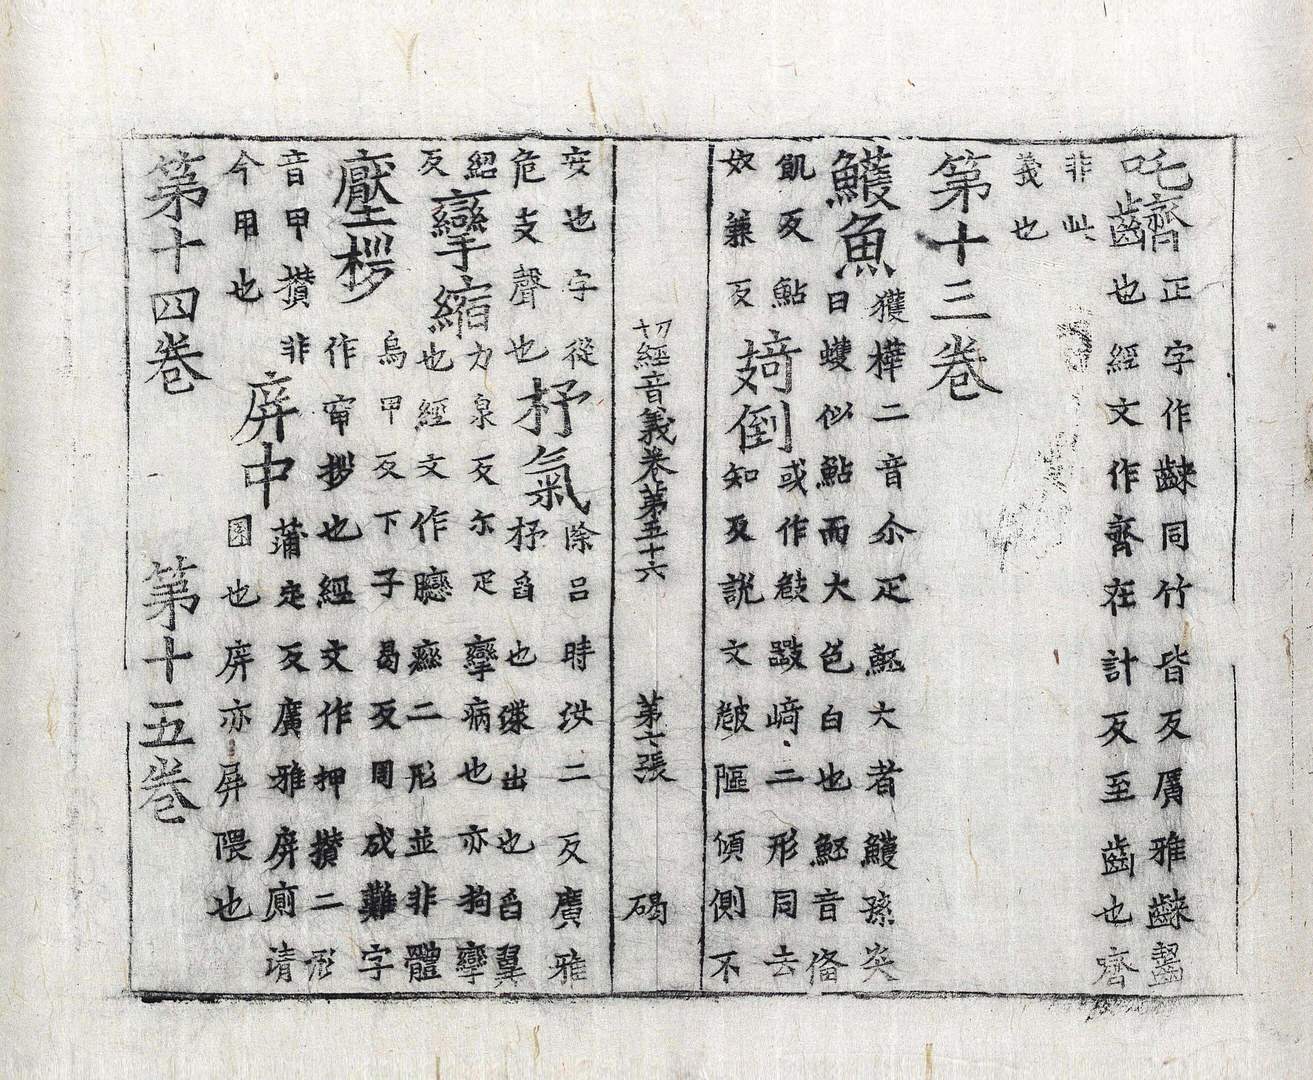 吒
正字作同竹皆反廣雅齧
也經文作齊在計反至齒也齊
非此
義也
第十三卷
鱯魚
獲樺二音尒疋魾大者鱯孫炎
曰鱯似鮎而大色白也魾音俻
飢反鮎
奴兼反
倒
或作崎二形同去
知反說文傾側不
切經音義卷第五十六 第七張 碣
安也字從
危支聲也
杼氣
除呂時汝二反廣雅
杼舀也渫出也舀翼
紹
反
攣縮
力泉反尒疋攣病也亦拘攣
也經文作二形並非體
壓桚
烏甲反下子曷反周成難字
作窄桚也經文作押攢二形
音甲攢非
今用也
屏中
蒲定反廣雅屏廁清
圂也屏亦屏隈也
第十四卷 第十五卷